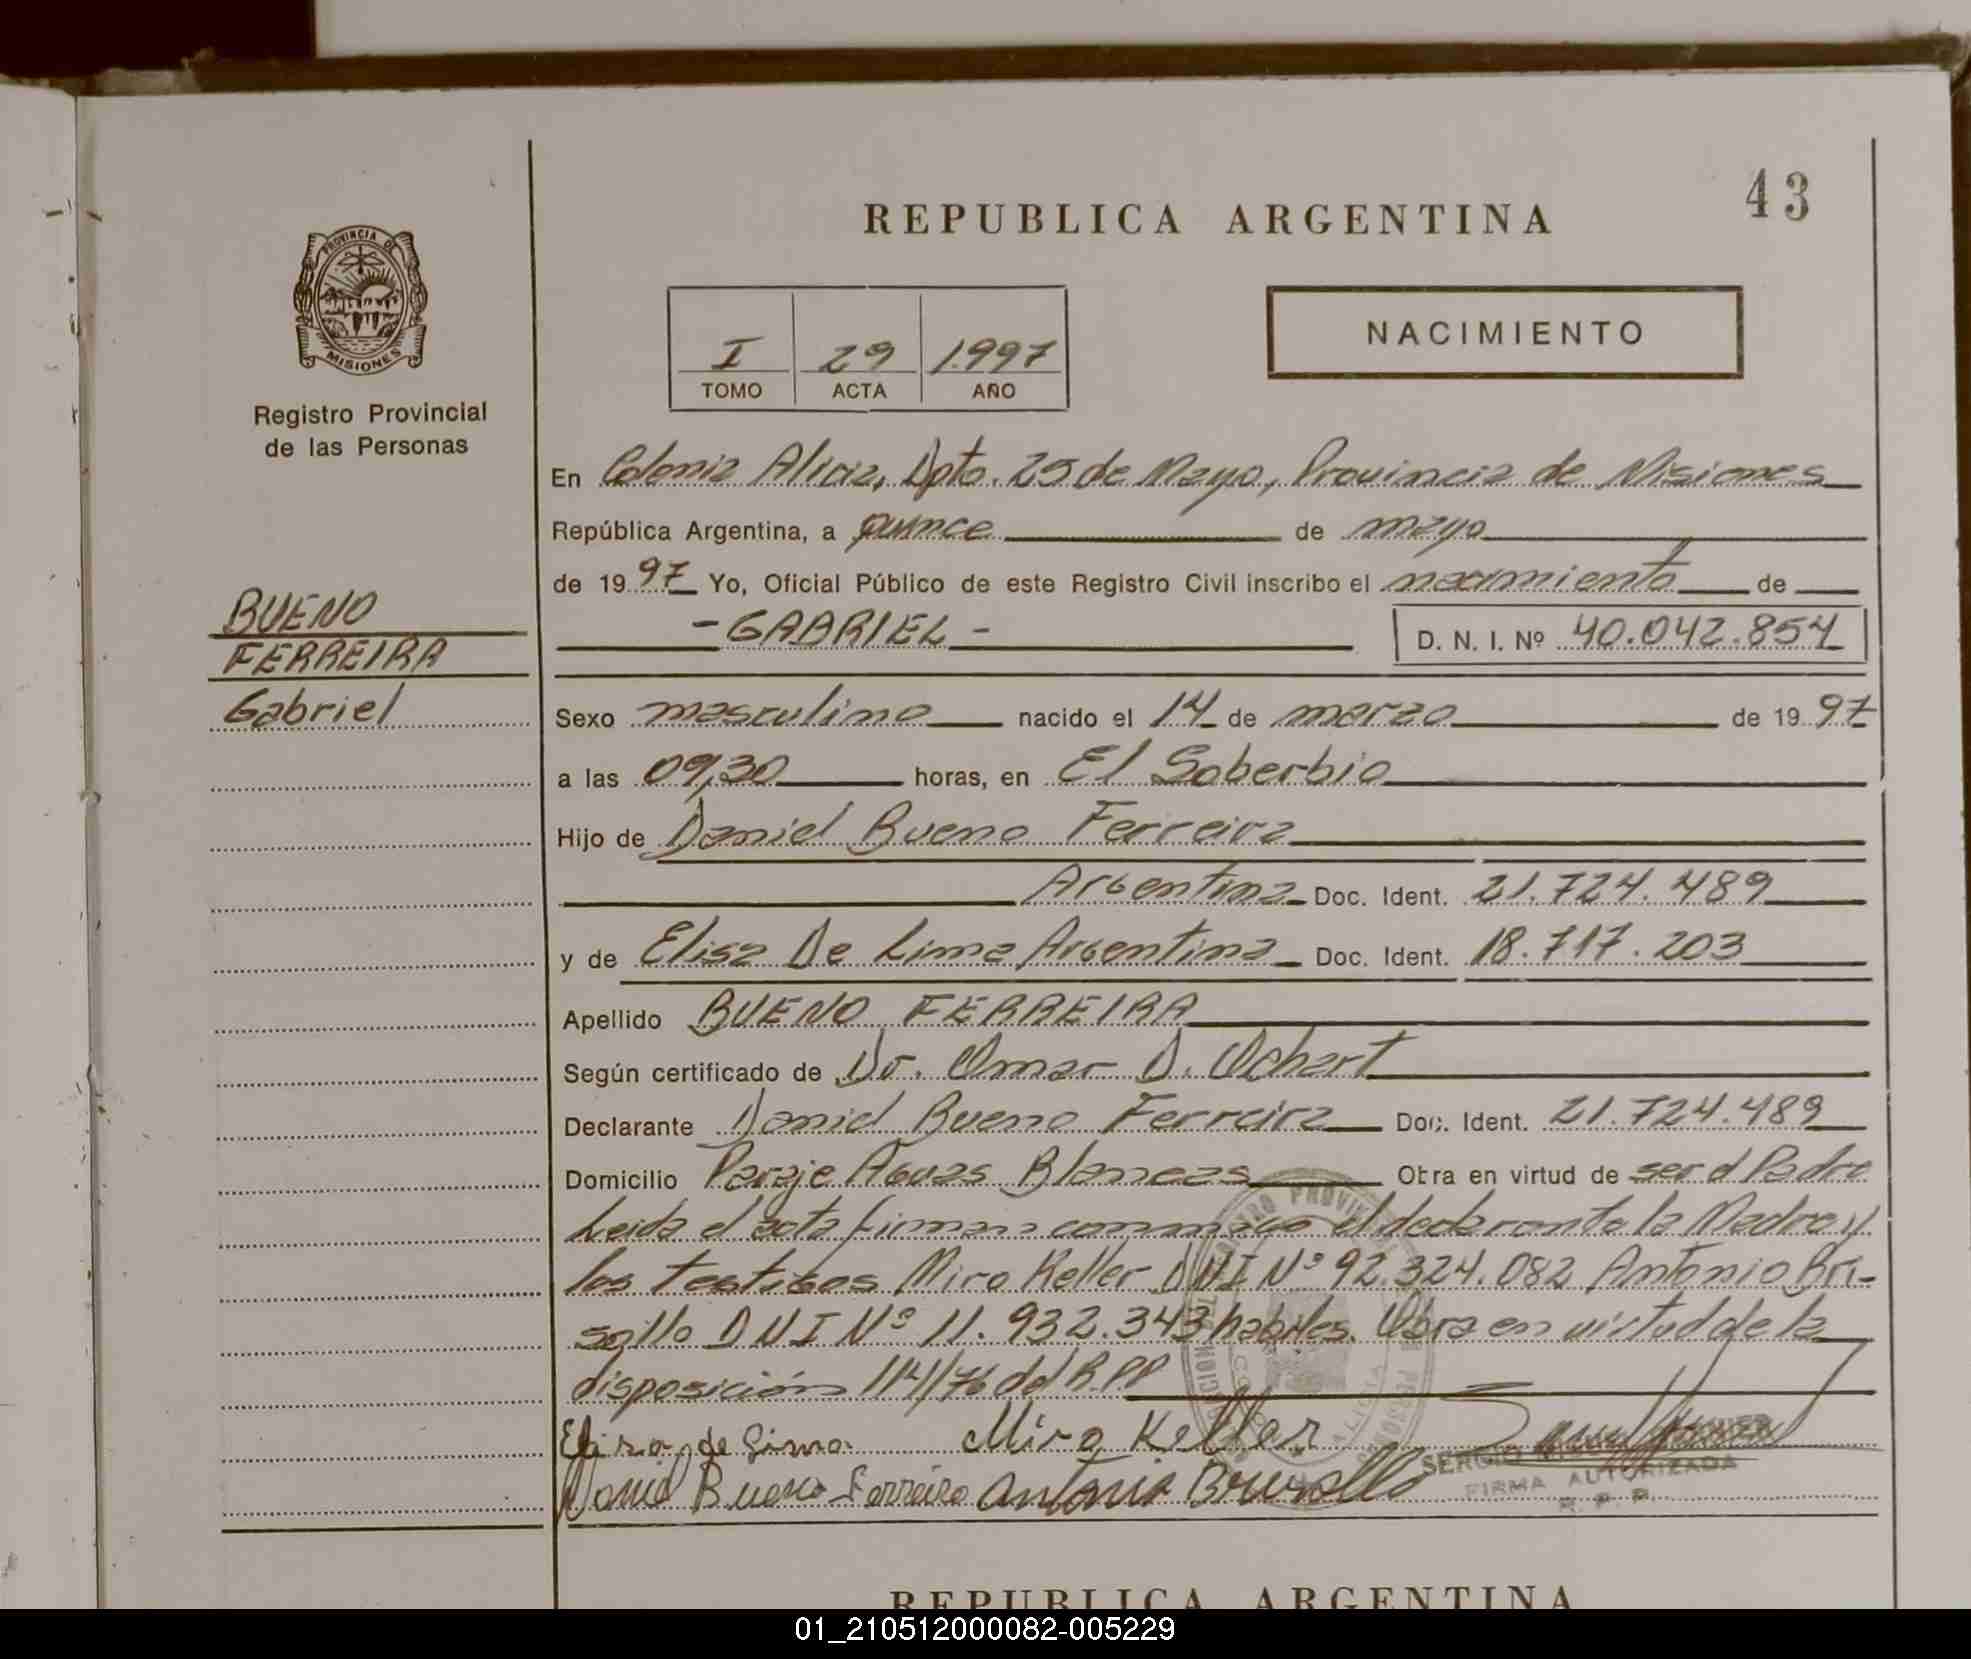 43
REPUBLICA ARGENTINA
PROVINCIA DE
MISIONES
Registro Provincial
de las Personas
NACIMIENTO
I 29 1.997
TOMO ACTA AÑO
En Colonia Alicia, Dpto. 25 de Mayo, Provincia de Misiones
República Argentina, a quince de mayo
de 19 97 Yo, Oficial Público de este Registro Civil inscribo el nacimiento de
BUENO
FERREIRA
Gabriel
- GABRIEL -
D. N. I. Nº 40.042.854
Sexo masculino nacido el 14 de marzo de 19 97
a las 09,30 horas, en El Soberbio
Hijo de Daniel Bueno Ferreira
Argentina Doc. Ident. 21.724.489
y de Elisa De Lima Argentina Doc. Ident. 18.717.203
Apellido BUENO FERREIRA
Según certificado de Dr. Omar D. Ochart
Declarante Daniel Bueno Ferreira Doc. Ident. 21.724.489
Domicilio Paraje Aguas Blancas Obra en virtud de ser el Padre
Leida el acta firman conmigo el declarante la Madre y
los testigos Miro Keller DNI Nº 92.324.082 Antonio Bri-
zollo DNI Nº 11.932.343 habiles. Obra en virtud de la
disposición 114/76 del R.P.P
Elisa de Lima Miro Keller
Daniel Bueno Ferreira Antonio
SERGIO
FIRMA AUTORIZADA
R. P. P.
REPUBLICA ARGENTINA
01_210512000082-005229